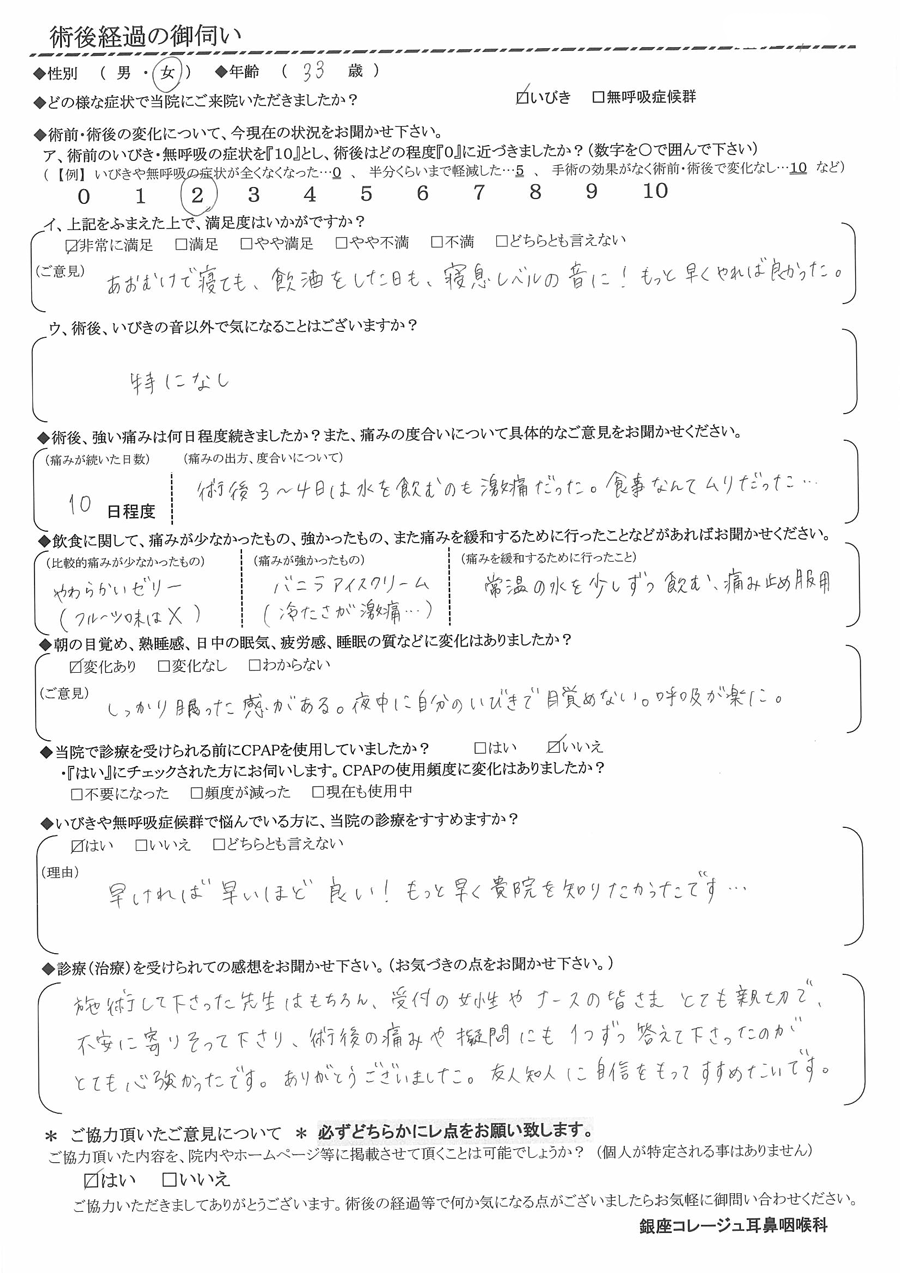 術後経過の御伺い
◆性別 ( 男 ・ 女 ) ◆年齢 ( 33 歳 )
◆どの様な症状で当院にご来院いただきましたか? ☑いびき □無呼吸症候群
◆術前・術後の変化について、今現在の状況をお聞かせ下さい。
ア、術前のいびき・無呼吸の症状を『10』とし、術後はどの程度『0』に近づきましたか?(数字を○で囲んで下さい)
(【例】いびきや無呼吸の症状が全くなくなった…0 、 半分くらいまで軽減した…5 、 手術の効果がなく術前・術後で変化なし…10 など)
0 1 2 3 4 5 6 7 8 9 10
イ、上記をふまえた上で、満足度はいかがですか?
☑非常に満足 □満足 □やや満足 □やや不満 □不満 □どちらとも言えない
(ご意見) あおむけで寝ても、飲酒をした日も、寝息レベルの音に!もっと早くやれば良かった。
ウ、術後、いびきの音以外で気になることはございますか?
特になし
◆術後、強い痛みは何日程度続きましたか?また、痛みの度合いについて具体的なご意見をお聞かせください。
(痛みが続いた日数) (痛みの出方、度合いについて)
10 日程度 術後3~4日は水を飲むのも激痛だった。食事なんてムリだった…
◆飲食に関して、痛みが少なかったもの、強かったもの、また痛みを緩和するために行ったことなどがあればお聞かせください。
(比較的痛みが少なかったもの) (痛みが強かったもの) (痛みを緩和するために行ったこと)
やわらかいゼリー バニラアイスクリーム 常温の水を少しずつ飲む、痛み止め服用
(フルーツ味は×) (冷たさが激痛…)
◆朝の目覚め、熟睡感、日中の眠気、疲労感、睡眠の質などに変化はありましたか?
☑変化あり □変化なし □わからない
(ご意見) しっかり眠った感がある。夜中に自分のいびきで目覚めない。呼吸が楽に。
◆当院で診療を受けられる前にCPAPを使用していましたか? □はい ☑いいえ
・『はい』にチェックされた方にお伺いします。CPAPの使用頻度に変化はありましたか?
□不要になった □頻度が減った □現在も使用中
◆いびきや無呼吸症候群で悩んでいる方に、当院の診療をすすめますか?
☑はい □いいえ □どちらとも言えない
(理由) 早ければ早いほど良い!もっと早く貴院を知りたかったです…
◆診療(治療)を受けられての感想をお聞かせ下さい。(お気づきの点をお聞かせ下さい。)
施術して下さった先生はもちろん、受付の女性やナースの皆さまとても親切で、
不安に寄りそって下さり、術後の痛みや擬問にも1つずつ答えて下さったのが
とても心強かったです。ありがとうございました。友人知人に自信をもってすすめたいです。
* ご協力頂いたご意見について * 必ずどちらかにレ点をお願い致します。
ご協力頂いた内容を、院内やホームページ等に掲載させて頂くことは可能でしょうか? (個人が特定される事はありません)
☑はい □いいえ
ご協力いただきましてありがとうございます。術後の経過等で何か気になる点がございましたらお気軽に御問い合わせください。
銀座コレージュ耳鼻咽喉科